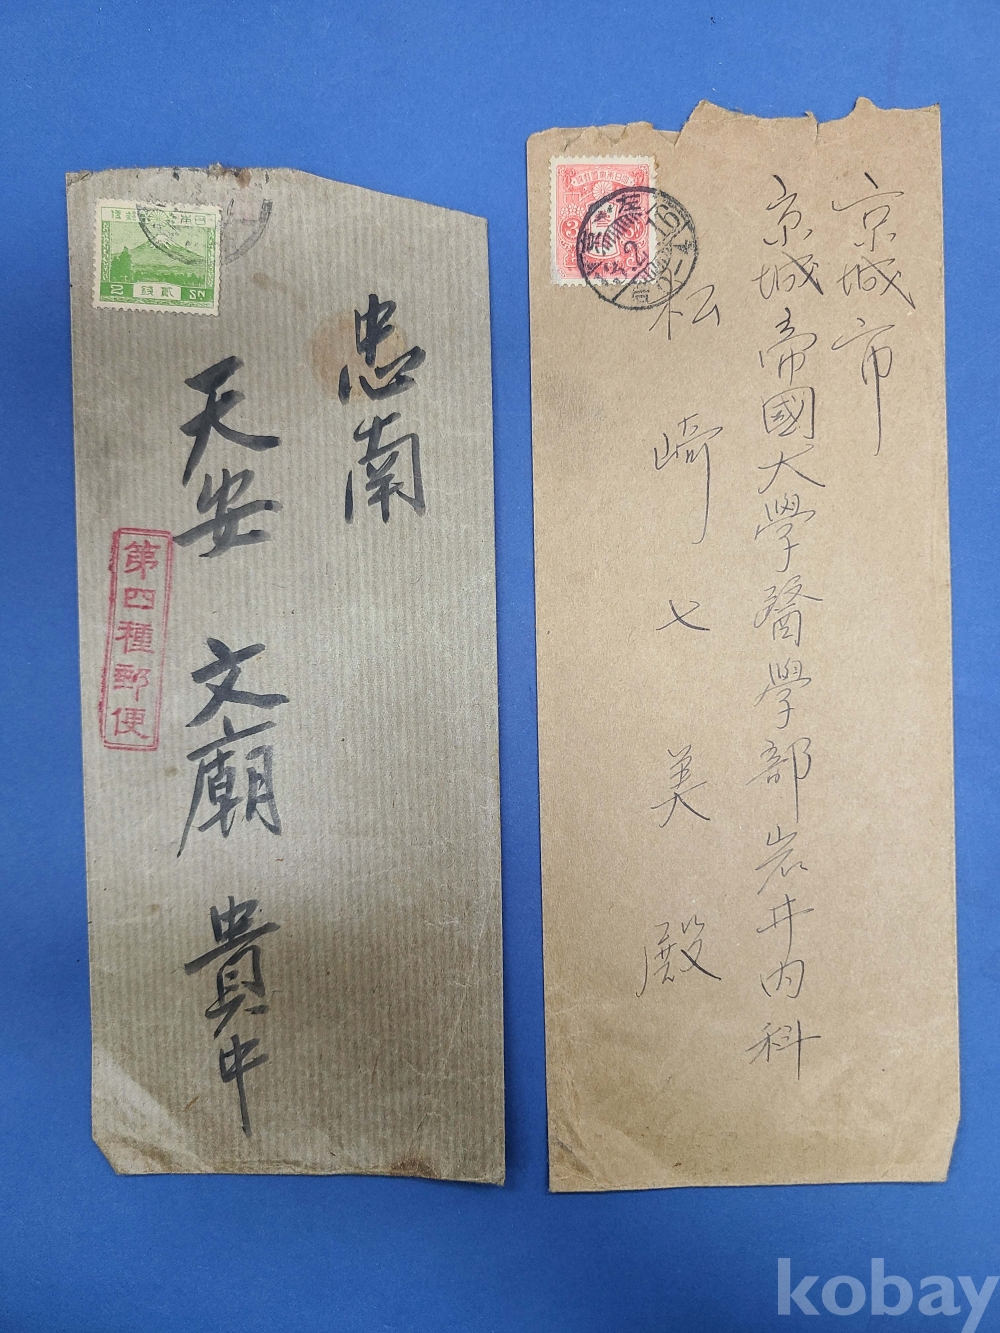 忠南
天安 文廟 貴中
第四種郵便
2 錢貳 SN
京城市
京城帝國大學醫學部岩井內科
松崎七美殿
3
kobay